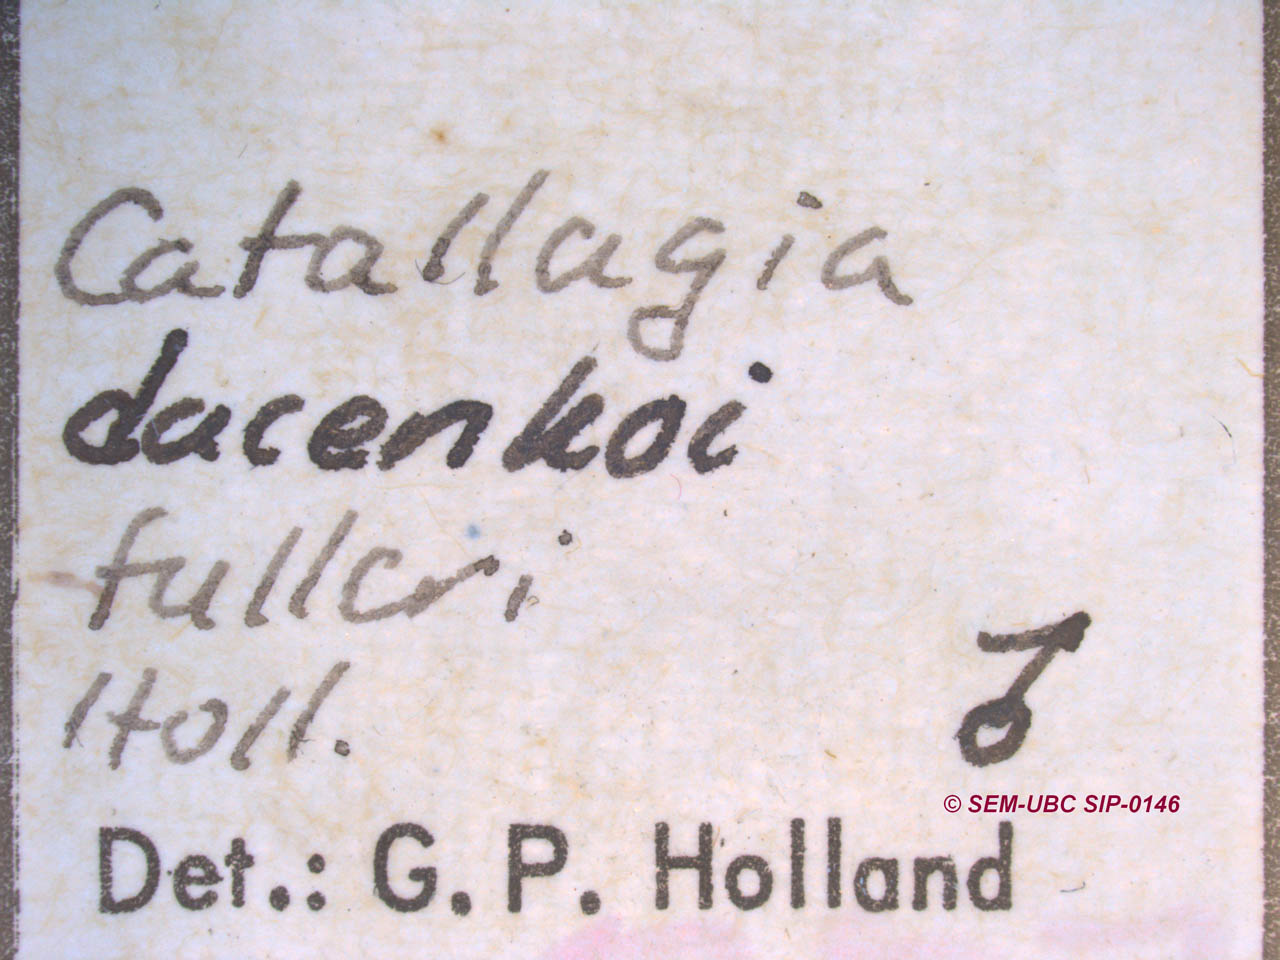 Catallagia
dacenkoi
fulleri
Holl.
♂
© SEM-UBC SIP-0146
Det.: G. P. Holland